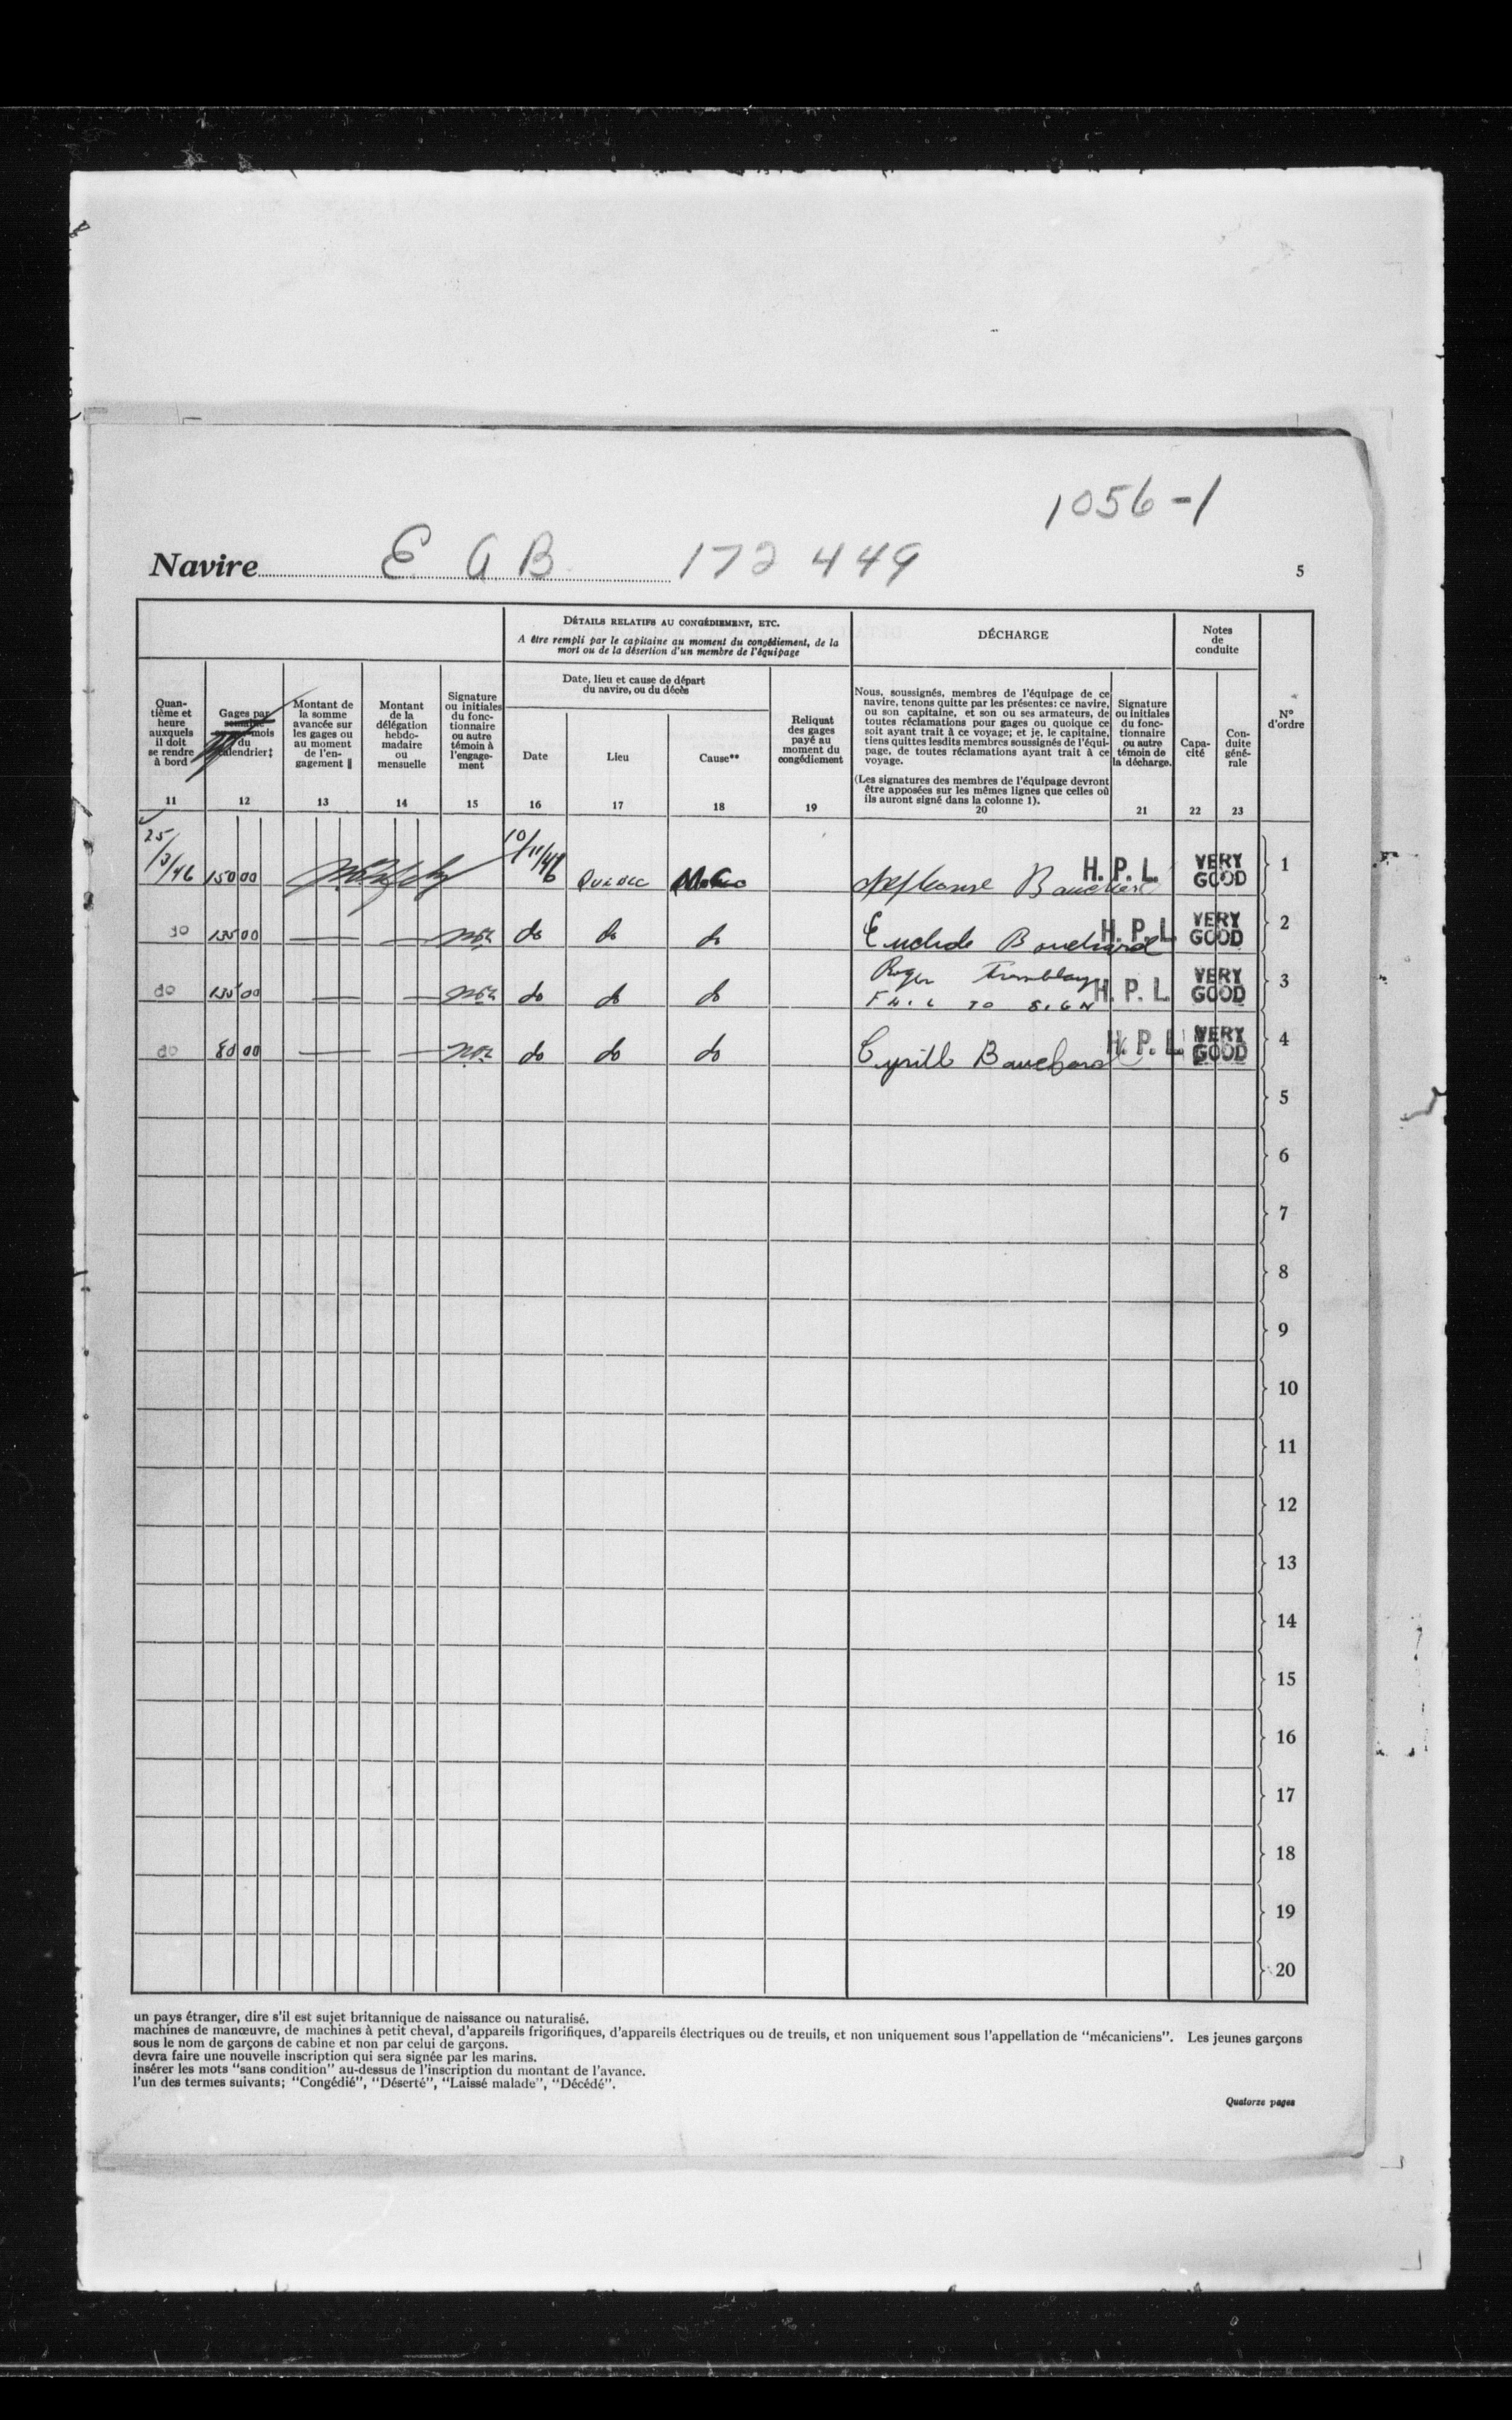 1056-1
Navire E A B 172 449
5
DÉTAILS RELATIFS AU CONGÉDIEMENT, ETC.
A être rempli par le capitaine au moment du congédiement, de la
mort ou de la désertion d'un membre de l'équipage
DÉCHARGE
Notes
de
conduite
Quan-
tième et
heure
auxquels
il doit
se rendre
à bord
11
Gages par
semaine
mois
du
calendrier‡
12
Montant de
la somme
avancée sur
les gages ou
au moment
de l'en-
gagement ‖
13
Montant
de la
délégation
hebdo-
madaire
ou
mensuelle
14
Signature
ou initiales
du fonc-
tionnaire
ou autre
témoin à
l'engage-
ment
15
Date, lieu et cause de départ
du navire, ou du décès
Date
16
Lieu
17
Cause**
18
Reliquat
des gages
payé au
moment du
congédiement
19
Nous, soussignés, membres de l'équipage de ce
navire, tenons quitte par les présentes: ce navire,
ou son capitaine, et son ou ses armateurs, de
toutes réclamations pour gages ou quoique ce
soit ayant trait à ce voyage; et je, le capitaine,
tiens quittes lesdits membres soussignés de l'équi-
page, de toutes réclamations ayant trait à ce
voyage.
(Les signatures des membres de l'équipage devront
être apposées sur les mêmes lignes que celles où
ils auront signé dans la colonne 1).
20
Signature
ou initiales
du fonc-
tionnaire
ou autre
témoin de
la décharge.
21
Capa-
cité
22
Con-
duite
géné-
rale
23
N°
d'ordre
25/3/46 150 00 10/11/46 Quebec Alphonse Bouchard H. P. L. VERY GOOD 1
do 135 00 — — do do do Euclide Bouchard H. P. L. VERY GOOD 2
do 135 00 — — do do do Roger Tremblay FAIL TO SIGN H. P. L. VERY GOOD 3
do 80 00 — — do do do Cyrill Bouchard H. P. L. VERY GOOD 4
5
6
7
8
9
10
11
12
13
14
15
16
17
18
19
20
un pays étranger, dire s'il est sujet britannique de naissance ou naturalisé.
machines de manœuvre, de machines à petit cheval, d'appareils frigorifiques, d'appareils électriques ou de treuils, et non uniquement sous l'appellation de "mécaniciens". Les jeunes garçons
sous le nom de garçons de cabine et non par celui de garçons.
devra faire une nouvelle inscription qui sera signée par les marins.
insérer les mots "sans condition" au-dessus de l'inscription du montant de l'avance.
l'un des termes suivants; "Congédié", "Déserté", "Laissé malade", "Décédé".
Quatorze pages